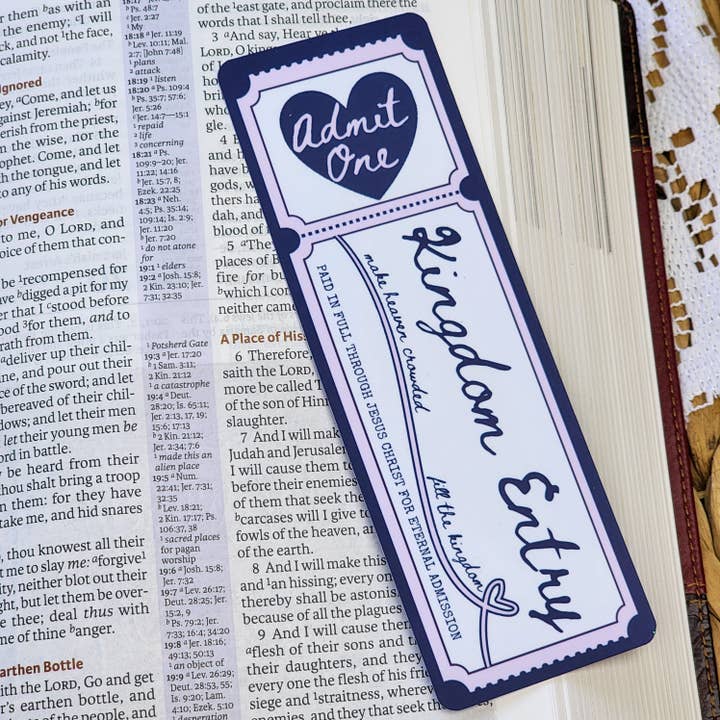 them bas with an
the enemy; cI will
ck, and not 1the face,
calamity.
gnored
ey, aCome, and let us
against Jeremiah; bfor
erish from the priest,
m the wise, nor the
ophet. Come, and let
th the tongue, and let
to any of his words.
or Vengeance
to me, O LORD, and
oice of them that con-
be 1recompensed for
ave bdigged a pit for my
er that I cstood before
ood 3for them, and to
rath from them.
adeliver up their chil-
ine, and pour out their
ce of the sword; and let
bereaved of their chil-
dows; and let their men
let their young men be
ord in battle.
y be heard from their
thou shalt bring a troop
n them: for they have
take me, and hid snares
, thou knowest all their
t me to slay me: aforgive1
ity, neither blot out their
ht, but let them be over-
thee; deal thus with
me of thine banger.
arthen Bottle
ith the LORD, Go and get
er's earthen bottle, and
of the people, and
b Ps. 48:7
c Jer. 2:27
1 My
18:18 a Jer. 11:19
b Lev. 10:11; Mal.
2:7; [John 7:48]
1 plans
2 attack
18:19 1 listen
18:20 a Ps. 109:4
b Ps. 35:7; 57:6;
Jer. 5:26
c Jer. 14:7—15:1
1 repaid
2 life
3 concerning
18:21 a Ps.
109:9–20; Jer.
11:22; 14:16
b Jer. 15:7, 8;
Ezek. 22:25
18:23 a Neh.
4:5; Ps. 35:14;
109:14; Is. 2:9;
Jer. 11:20
b Jer. 7:20
1 do not atone
for
19:1 1 elders
19:2 a Josh. 15:8;
2 Kin. 23:10; Jer.
7:31; 32:35
1 Potsherd Gate
19:3 a Jer. 17:20
b 1 Sam. 3:11;
2 Kin. 21:12
1 a catastrophe
19:4 a Deut.
28:20; Is. 65:11;
Jer. 2:13, 17, 19;
15:6; 17:13
b 2 Kin. 21:12;
Jer. 2:34; 7:6
1 made this an
alien place
19:5 a Num.
22:41; Jer. 7:31;
32:35
b Lev. 18:21;
2 Kin. 17:17; Ps.
106:37, 38
1 sacred places
for pagan
worship
19:6 a Josh. 15:8;
Jer. 7:32
19:7 a Lev. 26:17;
Deut. 28:25; Jer.
15:2, 9
b Ps. 79:2; Jer.
7:33; 16:4; 34:20
19:8 a Jer. 18:16;
49:13; 50:13
1 an object of
19:9 a Lev. 26:29;
Deut. 28:53, 55;
Is. 9:20; Lam.
4:10; Ezek. 5:10
of the 1east gate, and proclaim there the
words that I shall tell thee,
3 aAnd say, Hear ye
LORD, O kings
5 aThey
places of B
fire for bu
bwhich I con
neither came
A Place of His
6 Therefore,
saith the LORD,
more be called T
of the son of Hinn
slaughter.
7 And I will mak
Judah and Jerusale
I will cause them to
before their enemies
of them that seek the
bcarcases will I give to
fowls of the heaven, a
of the earth.
8 And I will make this
and 1an hissing; every on
thereby shall be astonis
because of all the plagues
9 And I will cause then
aflesh of their sons and t
their daughters, and they
every one the flesh of his frie
siege and 1straitness, wherev
enemies, and they that seek
Admit
One
Kingdom Entry
make heaven crowded
fill the kingdom
PAID IN FULL THROUGH JESUS CHRIST FOR ETERNAL ADMISSION